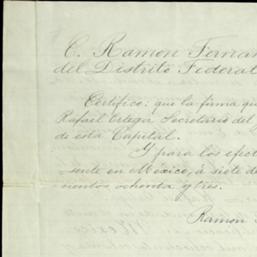 C. Ramon Fernan
del Distrito Federal
Certifico: que la firma qu
Rafael Ortega Secretario del
de esta Capital.
Y para los efect
sente en México, á siete d
cientos ochenta y tres.
Ramon